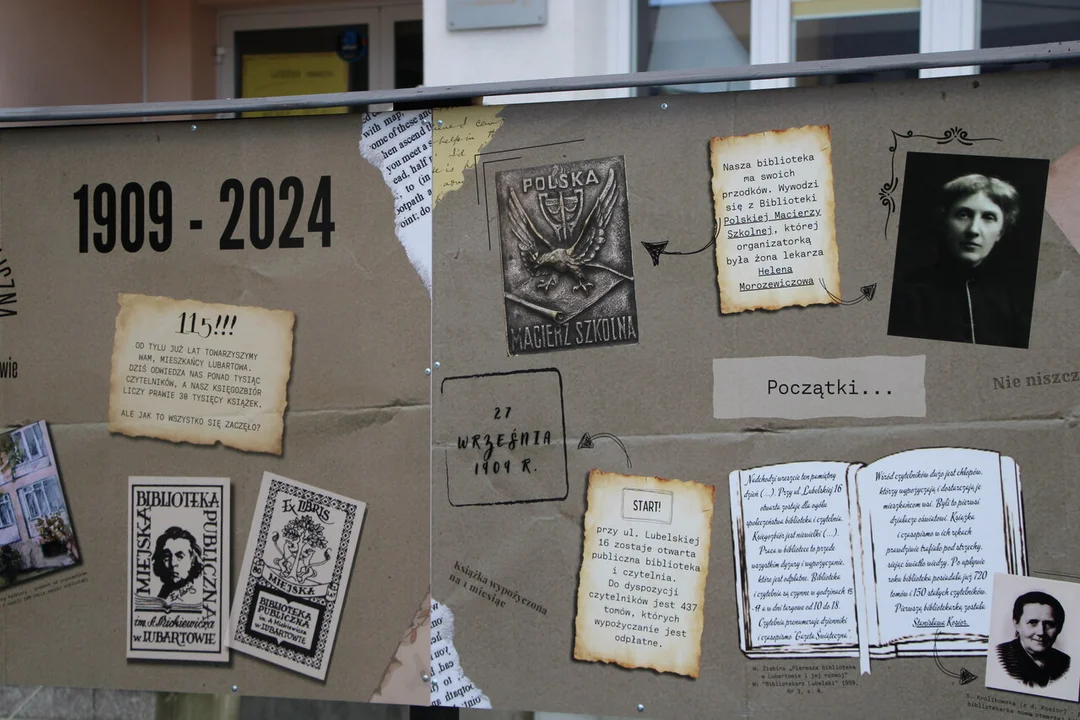 1909 - 2024
115!!!
OD TYLU JUŻ LAT TOWARZYSZYMY
WAM, MIESZKAŃCY LUBARTOWA.
DZIŚ ODWIEDZA NAS PONAD TYSIĄC
CZYTELNIKÓW, A NASZ KSIĘGOZBIÓR
LICZY PRAWIE 30 TYSIĘCY KSIĄŻEK.
ALE JAK TO WSZYSTKO SIĘ ZACZĘŁO?
wie
BIBLIOTEKA
MIEJSKA
PUBLICZNA
im. A. Mickiewicza
w LUBARTOWIE
EX LIBRIS
MIEJSKA
BIBLIOTEKA
PUBLICZNA
im. A Mickiewicza
w LUBARTOWIE
with map,
some of these and
then ascend
you meet a
ead, half
to (in
ootpath
oint; do
POLSKA
MACIERZ SZKOLNA
Nasza biblioteka
ma swoich
przodków. Wywodzi
się z Biblioteki
Polskiej Macierzy
Szkolnej, której
organizatorką
była żona lekarza
Helena
Morozewiczowa
Początki...
Nie niszcz
27
WRZEŚNIA
1909 R.
START!
przy ul. Lubelskiej
16 zostaje otwarta
publiczna biblioteka
i czytelnia.
Do dyspozycji
czytelników jest 437
tomów, których
wypożyczanie jest
odpłatne.
książka wypożyczona
na 1 miesiąc
Nadchodzi wreszcie ten pamiętny
dzień (...). Przy ul. Lubelskiej 16
otwarta zostaje dla ogółu
społeczeństwa biblioteka i czytelnia.
Księgozbiór jest niewielki (...).
Praca w bibliotece to przede
wszystkim dyżury i wypożyczanie,
które jest odpłatne. Biblioteka
i czytelnia są czynne w godzinach 15
a w dni targowe od 10 do 18.
Czytelnia prenumeruje dzienniki
i czasopismo "Gazeta Świąteczna".
Wśród czytelników dużo jest chłopów,
którzy wypożyczają i dostarczają je
mieszkańcom wsi. Byli to pierwsi
działacze oświatowi. Książka
i czasopismo w ich rękach
prawdziwie trafiało pod strzechy,
siejąc światło wiedzy. Po upływie
roku biblioteka posiadała już 720
tomów i 150 stałych czytelników.
Pierwszą bibliotekarką została
Stanisława Kosior.
W. Żiabira „Pierwsza biblioteka
w Lubartowie i jej rozwój"
W: "Bibliotekarz Lubelski" 1959,
Nr 3, s. 4.
S. Królikowska (z d. Kosior) -